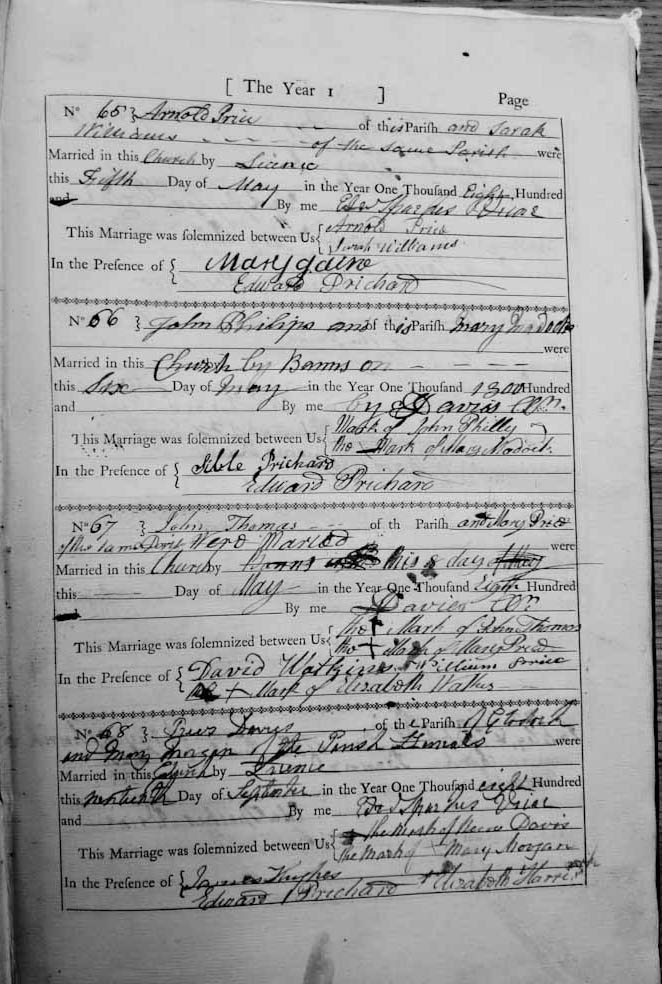 [ The Year 1 ] Page
No 65 } Arnold Price of this Parish and Sarah
Williams of the same Parish were
Married in this Church by Licence
this Fifth Day of May in the Year One Thousand Eight Hundred
and By me Edwd
This Marriage was solemnized between Us { Arnold Price
Sarah Williams
In the Presence of { Mary
Edward Prichard
No 66 } John Philips and of this Parish Mary
were
Married in this Church by Banns on
this Six Day of May in the Year One Thousand 1800 Hundred
and By me by Davies
This Marriage was solemnized between Us { Mark of John Philly
the Mark of Mary
In the Presence of { Sible Prichard
Edward Prichard
No 67 } John Thomas of th Parish and Mary Price
of the same Were Maried were
Married in this Church by Banns this 8 day of May
this Day of May in the Year One Thousand Eight Hundred
By me Davies
This Marriage was solemnized between Us { the + Mark of John Thomas
the + Mark of Mary Price
In the Presence of { David Watkins William Price
+ Mark of Elizabeth
No 68 } Davis of the Parish of
and Mary Morgan of the Parish were
Married in this Church by
this Day of September in the Year One Thousand eight Hundred
and By me Edwd
This Marriage was solemnized between Us { the Mark of Davis
the Mark of Mary Morgan
In the Presence of { James Hughes
Edward Prichard + Elizabeth